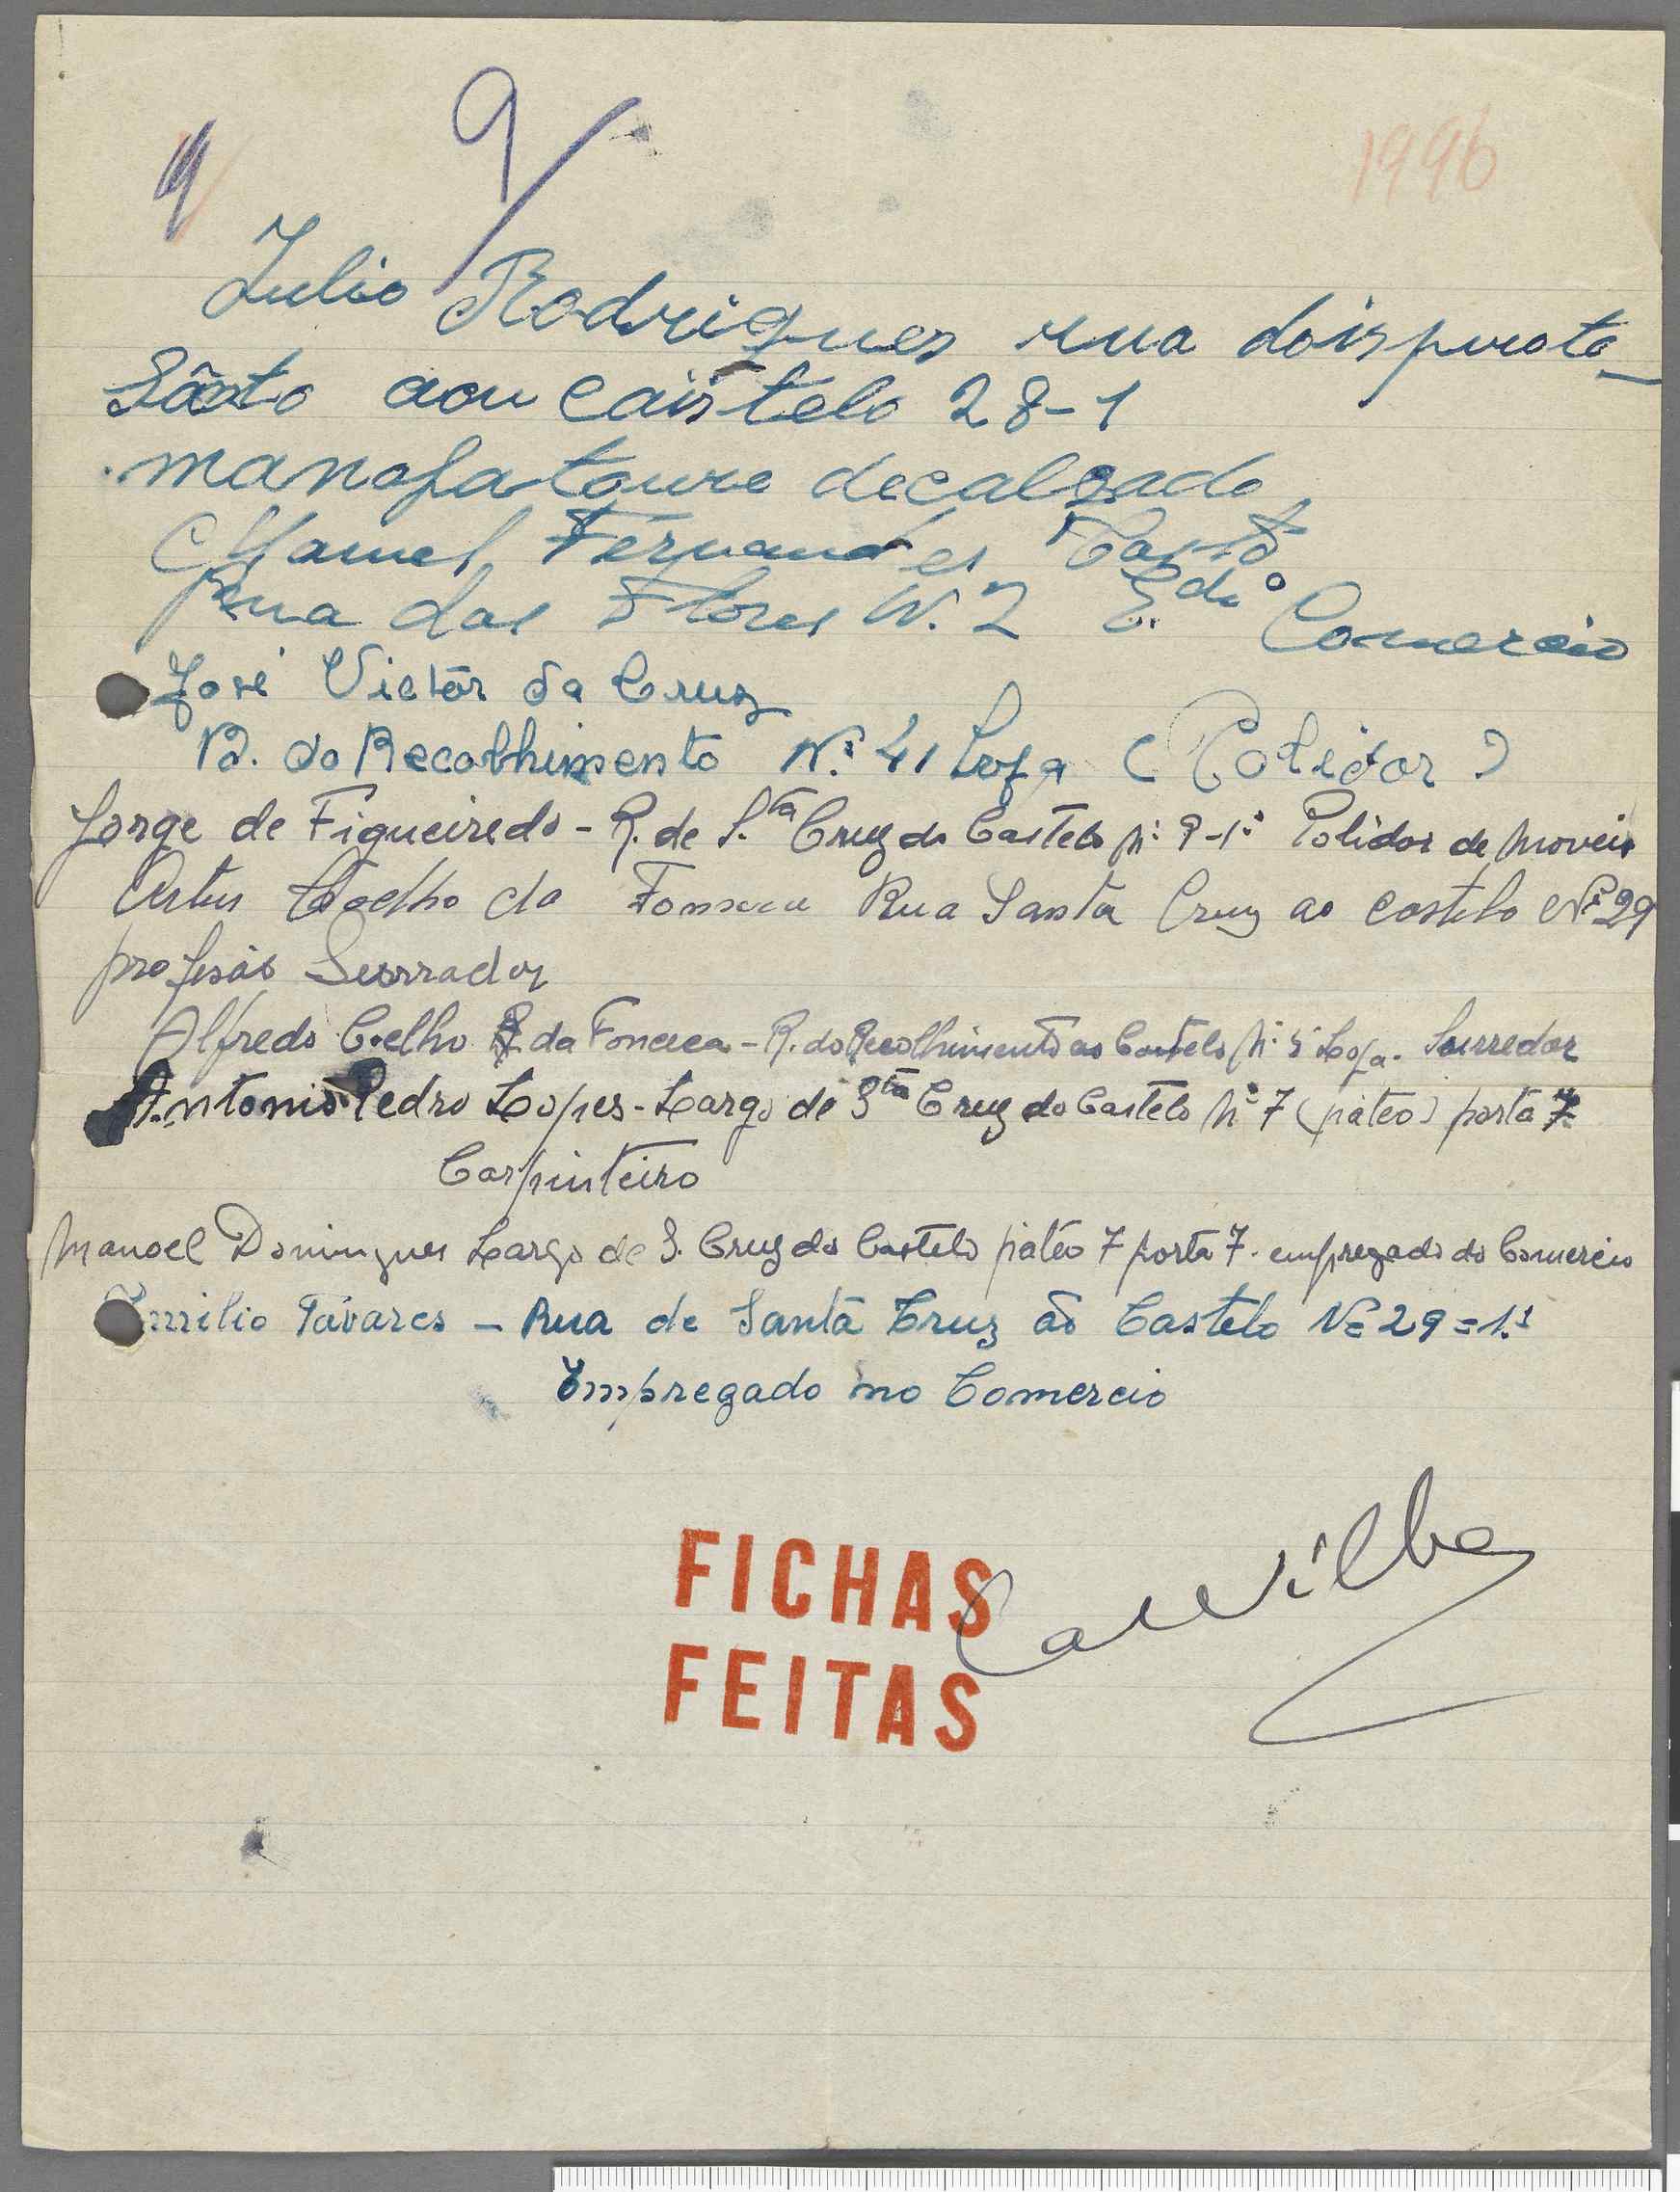 9
1996
Julio Rodrigues rua doisperota
Sânto aou Caistelo 28-1
manofatoure decalsado
Manuel Fernandes
Rua das Flores N. 2 E.do Comercio
José Victór da Cruz
R. do Recolhimento N.º 41 Loja (Polidor)
Jorge de Figueiredo - R. de S.ta Cruz do Castelo N.º 9-1.º Polidor de moveis
Artur Coelho da Fonseca Rua Santa Cruz ao Castelo Nº 29
profisão Serrador
Alfredo Coelho da Fonceca - R. do Recolhimento ao Castelo N.º 5 Loja. Surrador
Antonio Pedro Lopes - Largo de Sta Cruz do Castelo Nº 7 (páteo) porta 7
Carpinteiro
Manoel Domingues Largo de S. Cruz do Castelo páteo 7 porta 7. empregado do Comercio
Emilio Tavares - Rua de Santa Cruz ao Castelo Nº 29 = 1.º
Empregado no Comercio
FICHAS
FEITAS